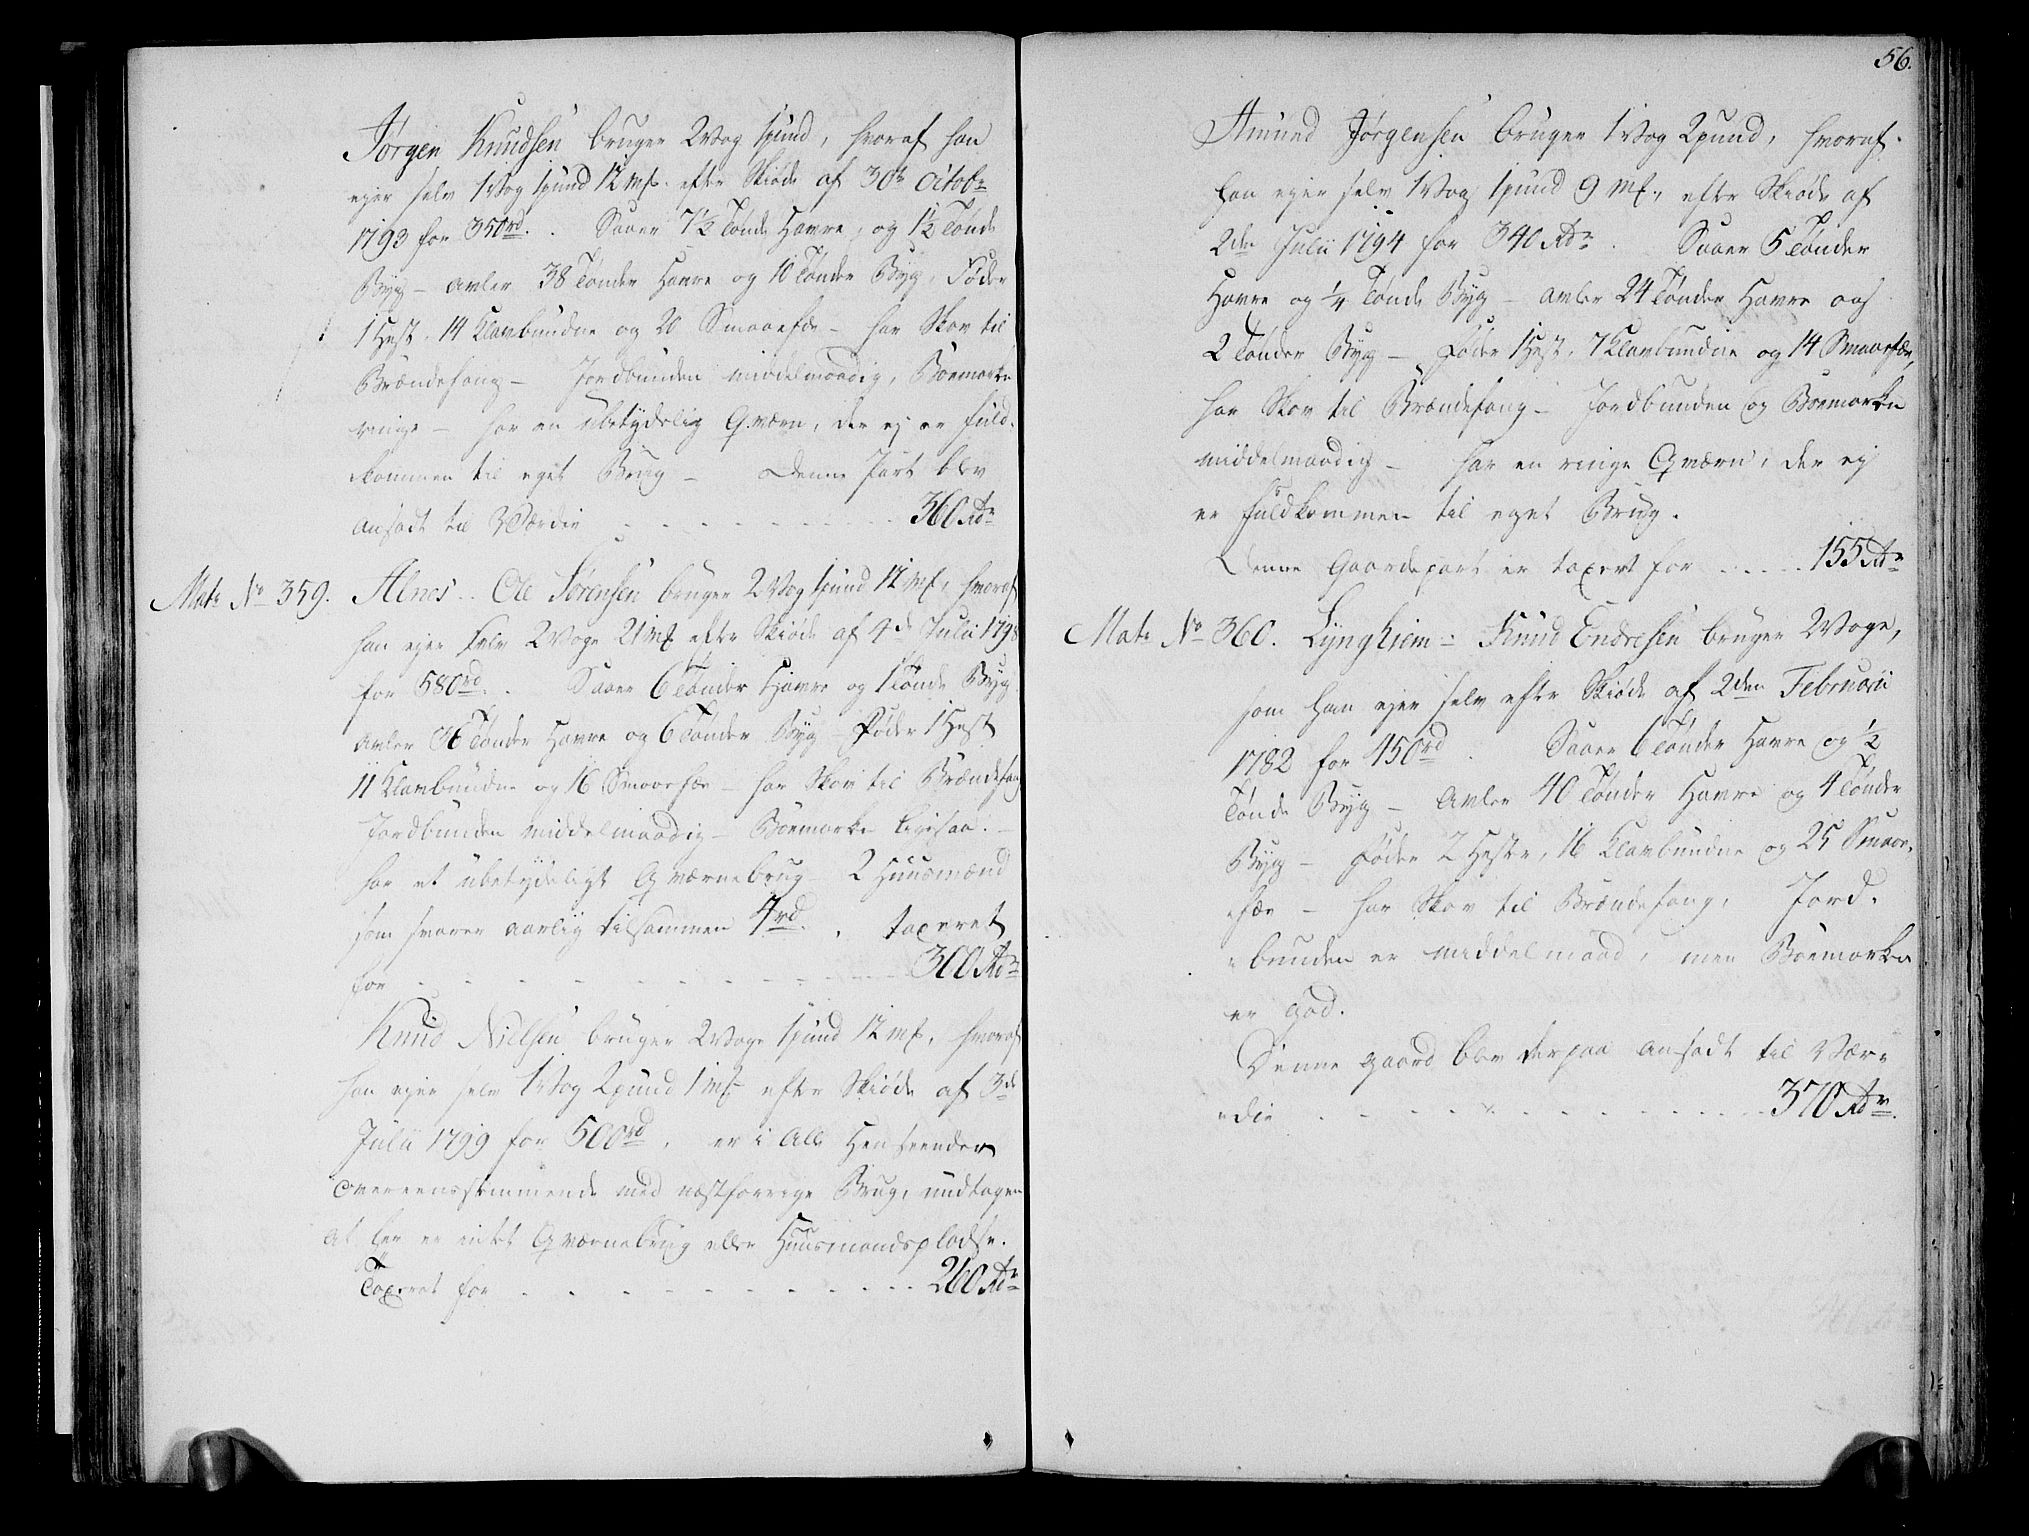 Jørgen Knudsen bruger 2 Vog 1 pund, hvoraf han
ejer selv 1 Vog 1 pund 12 mk. efter Skiøde af 30te Octobr
1793 for 350 rd. Saaer 7½ Tønde Havre, og 1½ Tønde
Byg - avler 38 Tønder Havre og 10 Tønder Byg, Føder
1 Hest, 14 Klavbundne og 20 Smaaefæ - har Skov til
Brændefang - Jordbunden middelmaadig, Bøemarken
ringe - har en ubetydelig Qværn, der ej er fuld-
kommen til eget Brug - Denne Part blev
ansadt til Værdie 360 Rdr
Mat: No 359. Alnes .. Ole Sørensen bruger 2 Vog 1 pund 12 mk, hvoraf
han ejer selv 2 Voge 21 mk efter Skiøde af 4de Julii 1798
for 580 rd. Saaer 6 Tønder Havre og 1 Tønde Byg
avler 36 Tønder Havre og 6 Tønder Byg - Føder 1 Hest
11 Klavbundne og 16 Smaaefæ - har Skov til Brændefang
Jordbunden middelmaadig - Bøemarken ligesaa. -
har et ubetydeligt Qværnebrug - 2 Huusmænd
som svarer aarlig tilsammen 4 rd. taxeret
for 300 Rdr
Knud Nielsen bruger 2 Voge 1 pund 12 mk, hvoraf
han ejer selv 1 Vog 2 pund 1 mk efter Skiøde af 3de
Julii 1799 for 500 rd. er i alle Henseender
overeensstemmende med næstforrige Brug, undtagen
at her er intet Qværnebrug eller Huusmandspladse.
Taxeret for 260 Rdr
56.
Amund Jørgensen bruger 1 Vog 2 pund, hvoraf
han ejer selv 1 Vog 1 pund 9 mk, efter Skiøde af
2den Julii 1794 for 340 Rdr. Saaer 5 Tønder
Havre og ¼ Tønde Byg - avler 24 Tønder Havre og
2 Tønder Byg - Føder 1 Hest, 7 Klavbundne og 14 Smaaefæe,
har Skov til Brændefang - Jordbunden og Bøemarken
middelmaadig - har en ringe Qværn, der ej
er fuldkommen til eget Brug.
Denne Gaardepart er taxert for 155 Rdr
Mat: No 360. Lynghiem - Knud Endresen bruger 2 Voge,
som han ejer selv efter Skiøde af 2den Februarii
1782 for 450 rd. Saaer 6 Tønder Havre og ½
Tønde Byg - avler 40 Tønder Havre og 4 Tønder
Byg - Føder 2 Heste, 16 Klavbundne og 25 Smaae-
fæe - har Skov til Brændefang, Jord-
bunden er middelmaad, men Bøemarken
er god.
Denne gaard blev derpaa ansadt til Vær-
die 370 Rdr.